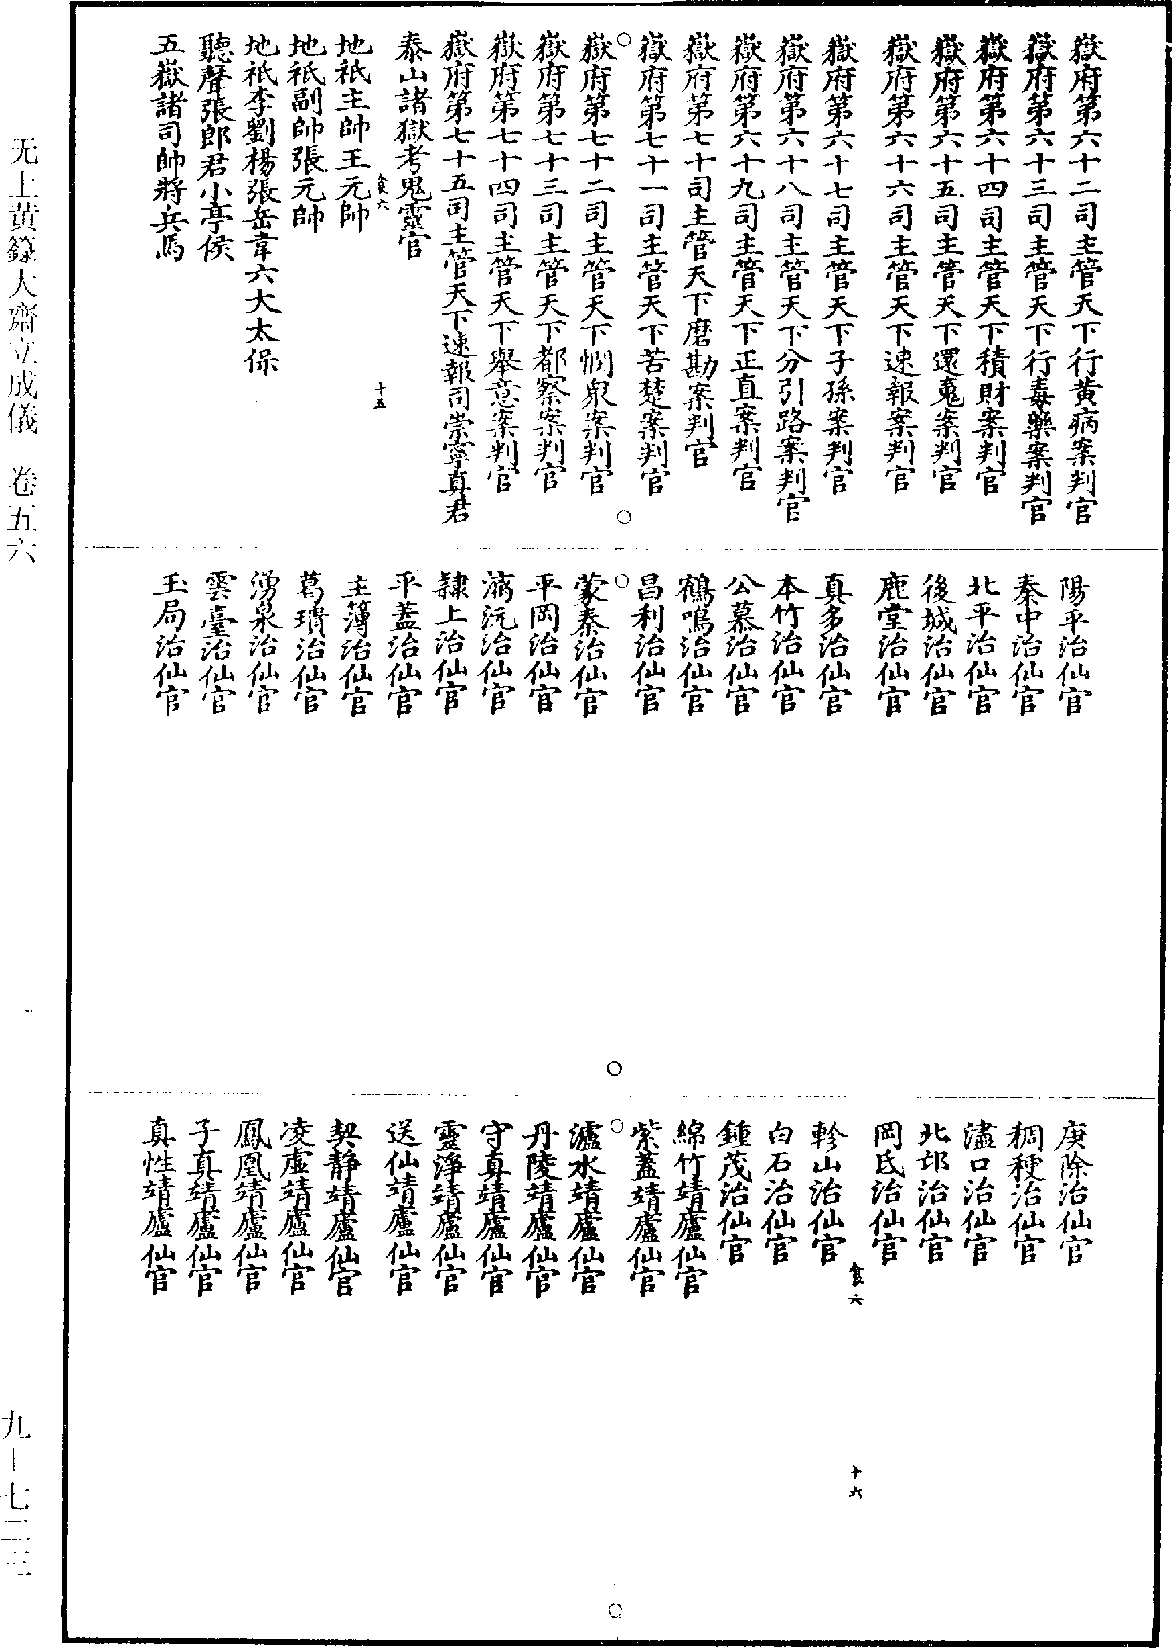 嶽府第六十二司主管天下行黃病案判官
嶽府第六十三司主管天下行毒藥案判官
嶽府第六十四司主管天下積財案判官
嶽府第六十五司主管天下還寃案判官
嶽府第六十六司主管天下速報案判官
嶽府第六十七司主管天下子孫案判官
嶽府第六十八司主管天下分引路案判官
嶽府第六十九司主管天下正直案判官
嶽府第七十司主管天下磨勘案判官
嶽府第七十一司主管天下苦楚案判官
嶽府第七十二司主管天下惘泉案判官
嶽府第七十三司主管天下都察案判官
嶽府第七十四司主管天下舉意案判官
嶽府第七十五司主管天下速報司崇寧真君
泰山諸獄考鬼靈官
食六
十五
地祇主帥王元帥
地祇副帥張元帥
地祇李劉楊張岳韋六大太保
聽聲張郎君小亭侯
五嶽諸司帥將兵馬
陽平治仙官
秦中治仙官
北平治仙官
後城治仙官
鹿堂治仙官
真多治仙官
本竹治仙官
公慕治仙官
鶴鳴治仙官
昌利治仙官
蒙秦治仙官
平岡治仙官
漓沅治仙官
隸上治仙官
平蓋治仙官
主簿治仙官
葛璝治仙官
湧泉治仙官
雲臺治仙官
玉局治仙官
庚除治仙官
稠稉治仙官
濜口治仙官
北邙治仙官
岡氐治仙官
食六
十六
軫山治仙官
白石治仙官
鍾茂治仙官
綿竹靖廬仙官
紫蓋靖廬仙官
瀘水靖廬仙官
丹陵靖廬仙官
守真靖廬仙官
靈淨靖廬仙官
送仙靖廬仙官
契靜靖廬仙官
凌虛靖廬仙官
鳳凰靖廬仙官
子真靖廬仙官
真性靖廬仙官
无上黃籙大齋立成儀 卷五六
九—七二三